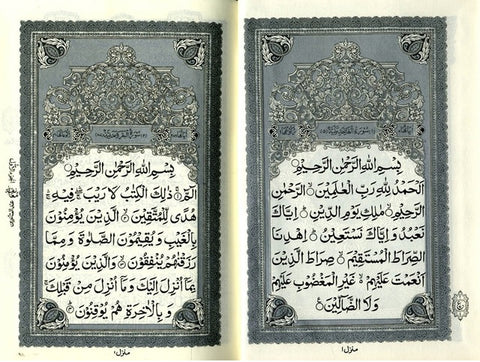 بِسْمِ اللهِ الرَّحْمٰنِ الرَّحِيْمِ
اَلْحَمْدُ لِلّٰهِ رَبِّ الْعٰلَمِيْنَ ۙ الرَّحْمٰنِ
الرَّحِيْمِ ۙ مٰلِكِ يَوْمِ الدِّيْنِ ؕ اِيَّاكَ
نَعْبُدُ وَاِيَّاكَ نَسْتَعِيْنُ ؕ اِهْدِنَا
الصِّرَاطَ الْمُسْتَقِيْمَ ۙ صِرَاطَ الَّذِيْنَ
اَنْعَمْتَ عَلَيْهِمْ ۙ غَيْرِ الْمَغْضُوْبِ عَلَيْهِمْ
وَلَا الضَّآلِّيْنَ
منزل ١
بِسْمِ اللهِ الرَّحْمٰنِ الرَّحِيْمِ
الٓمّٓ ۚ ذٰلِكَ الْكِتٰبُ لَا رَيْبَ ۛ فِيْهِ ۛ
هُدًى لِّلْمُتَّقِيْنَ ۙ الَّذِيْنَ يُؤْمِنُوْنَ
بِالْغَيْبِ وَيُقِيْمُوْنَ الصَّلٰوةَ وَمِمَّا
رَزَقْنٰهُمْ يُنْفِقُوْنَ ۙ وَالَّذِيْنَ يُؤْمِنُوْنَ
بِمَآ اُنْزِلَ اِلَيْكَ وَمَآ اُنْزِلَ مِنْ قَبْلِكَ ۚ
وَبِالْاٰخِرَةِ هُمْ يُوْقِنُوْنَ
منزل ١